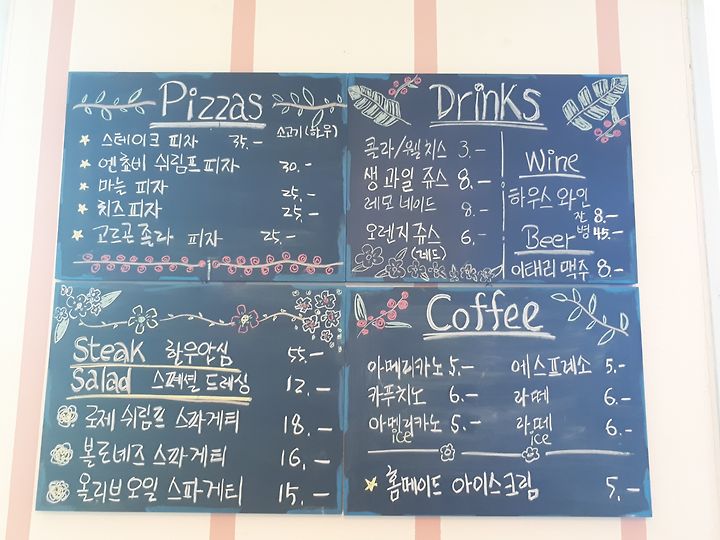 Pizzas
소고기(한우)
스테이크 피자 35.-
엔쵸비 쉬림프 피자 30.-
마늘 피자 25.-
치즈피자 25.-
고르곤졸라 피자 25.-
Drinks
콜라/웰치스 3.-
생과일 쥬스 8.-
레모네이드 8.-
오렌지쥬스 6.-
(레드)
Wine
하우스 와인
잔 8.-
병 45.-
Beer
이태리 맥주 8.-
Steak 한우안심 55.-
Salad 스페셜 드레싱 12.-
로제 쉬림프 스파게티 18.-
볼로네즈 스파게티 16.-
올리브오일 스파게티 15.-
Coffee
아메리카노 5.-
카푸치노 6.-
아메리카노 5.-
ice
에스프레소 5.-
라떼 6.-
라떼 6.-
ice
홈메이드 아이스크림 5.-